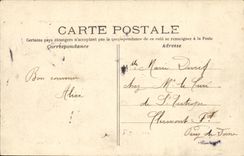 CARTE POSTALE
Certains pays étrangers n'acceptent pas la correspondance de ce côté se renseigner à la Poste
Correspondance
Adresse
Bon souvenir
Alice
Mlle Marie
chez Mr le Curé
de St
Clermont Fd
Puy de Dôme